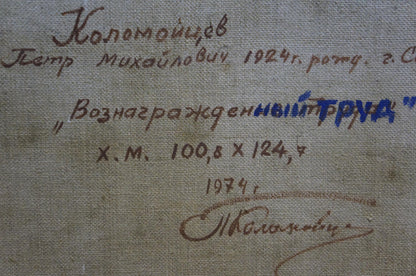 Коломойцев
Петр Михайлович, 1924г. рожд. г. С
"Вознагражденный ТРУД"
х.м. 100,8 х 124,7
1974г
ПКоломойце